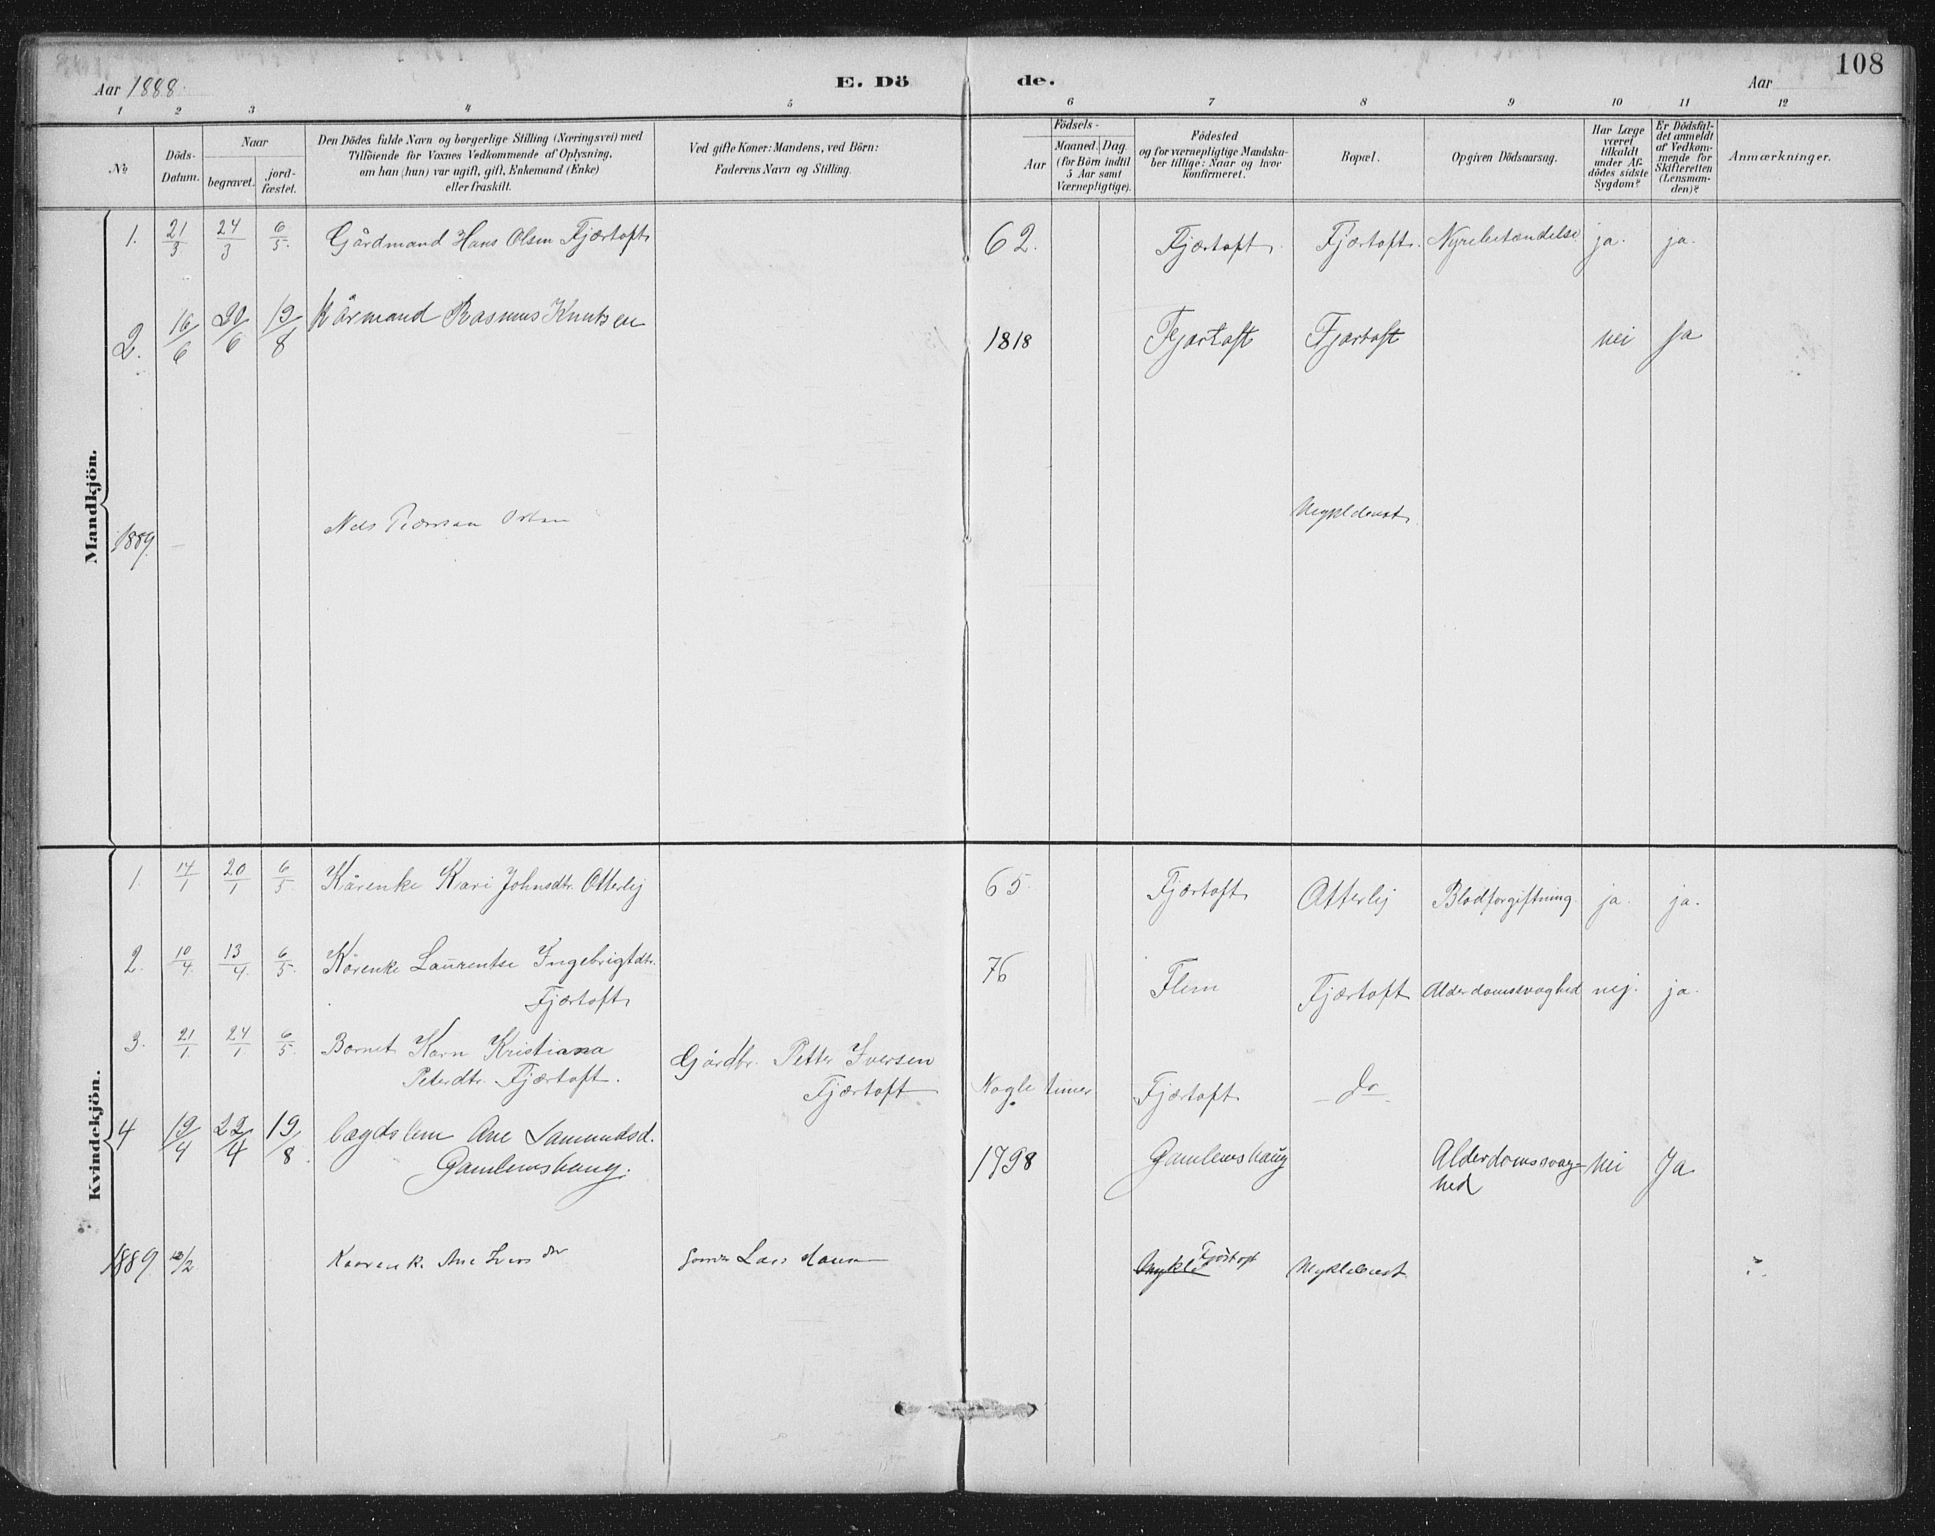 108
Aar 1888.
E. Dö
de.
Aar
1 2 3 4 5 6 7 8 9 10 11 12
No
Döds-
Datum.
Naar
begravet.
jord-
fæstet.
Den Dödes fulde Navn og borgerlige Stilling (Næringsvei) med
Tilföiende for Voxnes Vedkommende af Oplysning,
om han (hun) var ugift, gift, Enkemand (Enke)
eller fraskilt.
Ved gifte Koner: Mandens, ved Börn:
Faderens Navn og Stilling.
Födsels-
Aar
Maaned. Dag
(for Börn indtil
5 Aar samt
Værnepligtige).
Födested
og for værnepligtige Mandska-
ber tillige: Naar og hvor
konfirmeret.
Bopæl.
Opgiven Dödsaarsag.
Har Læge
været
tilkaldt
under Af-
dödes sidste
Sygdom?
Er Dödsfal-
det anmeldt
af Vedkom-
mende for
Skifteretten
(Lensman-
den)?
Anmærkninger.
Mandkjön.
1. 21/3 24/3 6/5 Gårdmand Hans Olsen Fjærtoft 62. Fjærtoft. Fjærtoft. Nyrebetændelse ja. ja.
2. 16/6 20/6 19/8 Kårmand Rasmus Knutsen 1818 Fjærtoft Fjærtoft nei Ja
1889. Nels
Kvindekjön.
1. 14/1 20/1 6/5 Kårenke Kari Johnsdtr. Otterlej 65. Fjærtoft Otterlej Blodforgiftning. ja. ja.
2. 10/4 13/4 6/5 Kårenke Laurentse Ingebrigtdtr.
Fjærtoft 76 Flem Fjærtoft Alderdomssvaghed nej. ja.
3. 21/1 24/1 6/5 Barnet Karn Kristiana
Peterdtr. Fjærtoft. Gårdbr. Petter Iversen
Fjærtoft Nogle timer Fjærtoft - do -
4 19/4 22/4 19/8 Lægdslem Ane Samundsd.
Gamlemshaug. 1798 Gamlemshaug Alderdomssvag-
hed Nei Ja
1889. /2 Kaarenke Ane Ivers dtr Lars Mykle Fjørtoft Myklebust ?